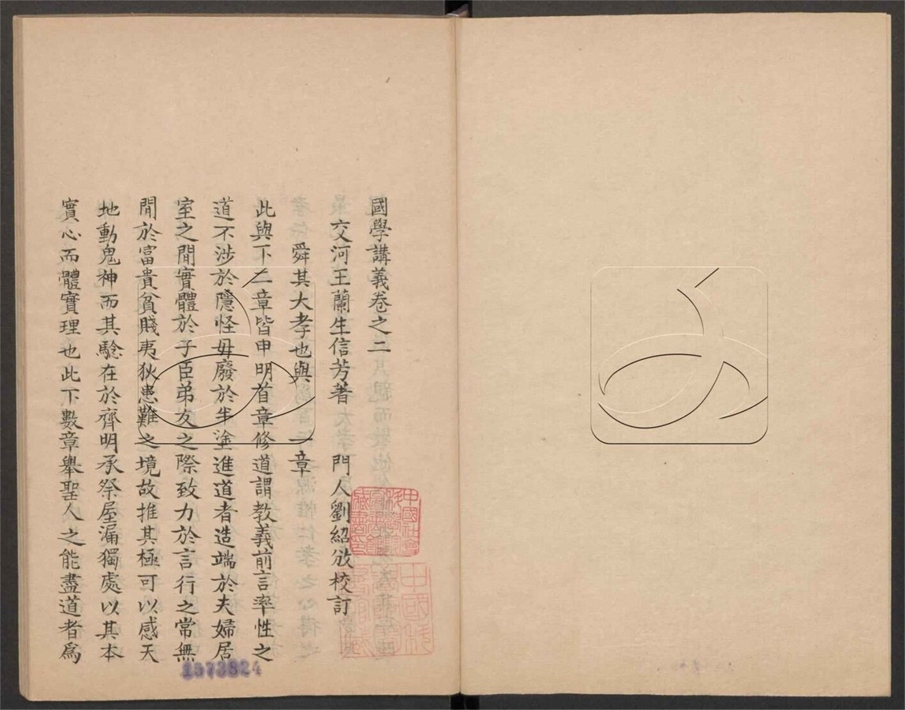 國學講義卷之二
交河王蘭生信芳著　門人劉紹攽校訂
舜其大孝也與　一章
此與下二章皆申明首章修道謂教義前言率性之
道不涉於隱怪毋廢於半塗進道者造端於夫婦居
室之閒實體於子臣弟友之際致力於言行之常無
閒於富貴貧賤夷狄患難之境故推其極可以感天
地動鬼神而其驗在於齊明承祭屋漏獨處以其本
實心而體實理也此下數章舉聖人之能盡道者為
1573824